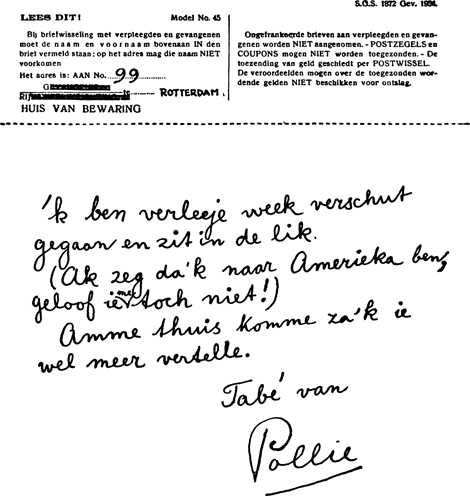 S.G.S. 1872 Gev. 1934.
LEES DIT! Model No. 45
Bij briefwisseling met verpleegden en gevangenen
moet de naam en voornaam bovenaan IN den
brief vermeld staan; op het adres mag die naam NIET
voorkomen
Het adres is: AAN No. 99
G
R is ROTTERDAM.
HUIS VAN BEWARING
Ongefrankeerde brieven aan verpleegden en gevan-
genen worden NIET aangenomen. - POSTZEGELS en
COUPONS mogen NIET worden toegezonden. - De
toezending van geld geschiedt per POSTWISSEL.
De veroordeelden mogen over de toegezonden wor-
dende gelden NIET beschikken voor ontslag.
'k ben verleeje week verschut
gegaan en zit in de lik.
(Ak zeg da'k naar Amerieka ben,
geloof ie me toch niet!)
Amme thuis komme za'k ie
wel meer vertelle.
Tabé van
Pollie